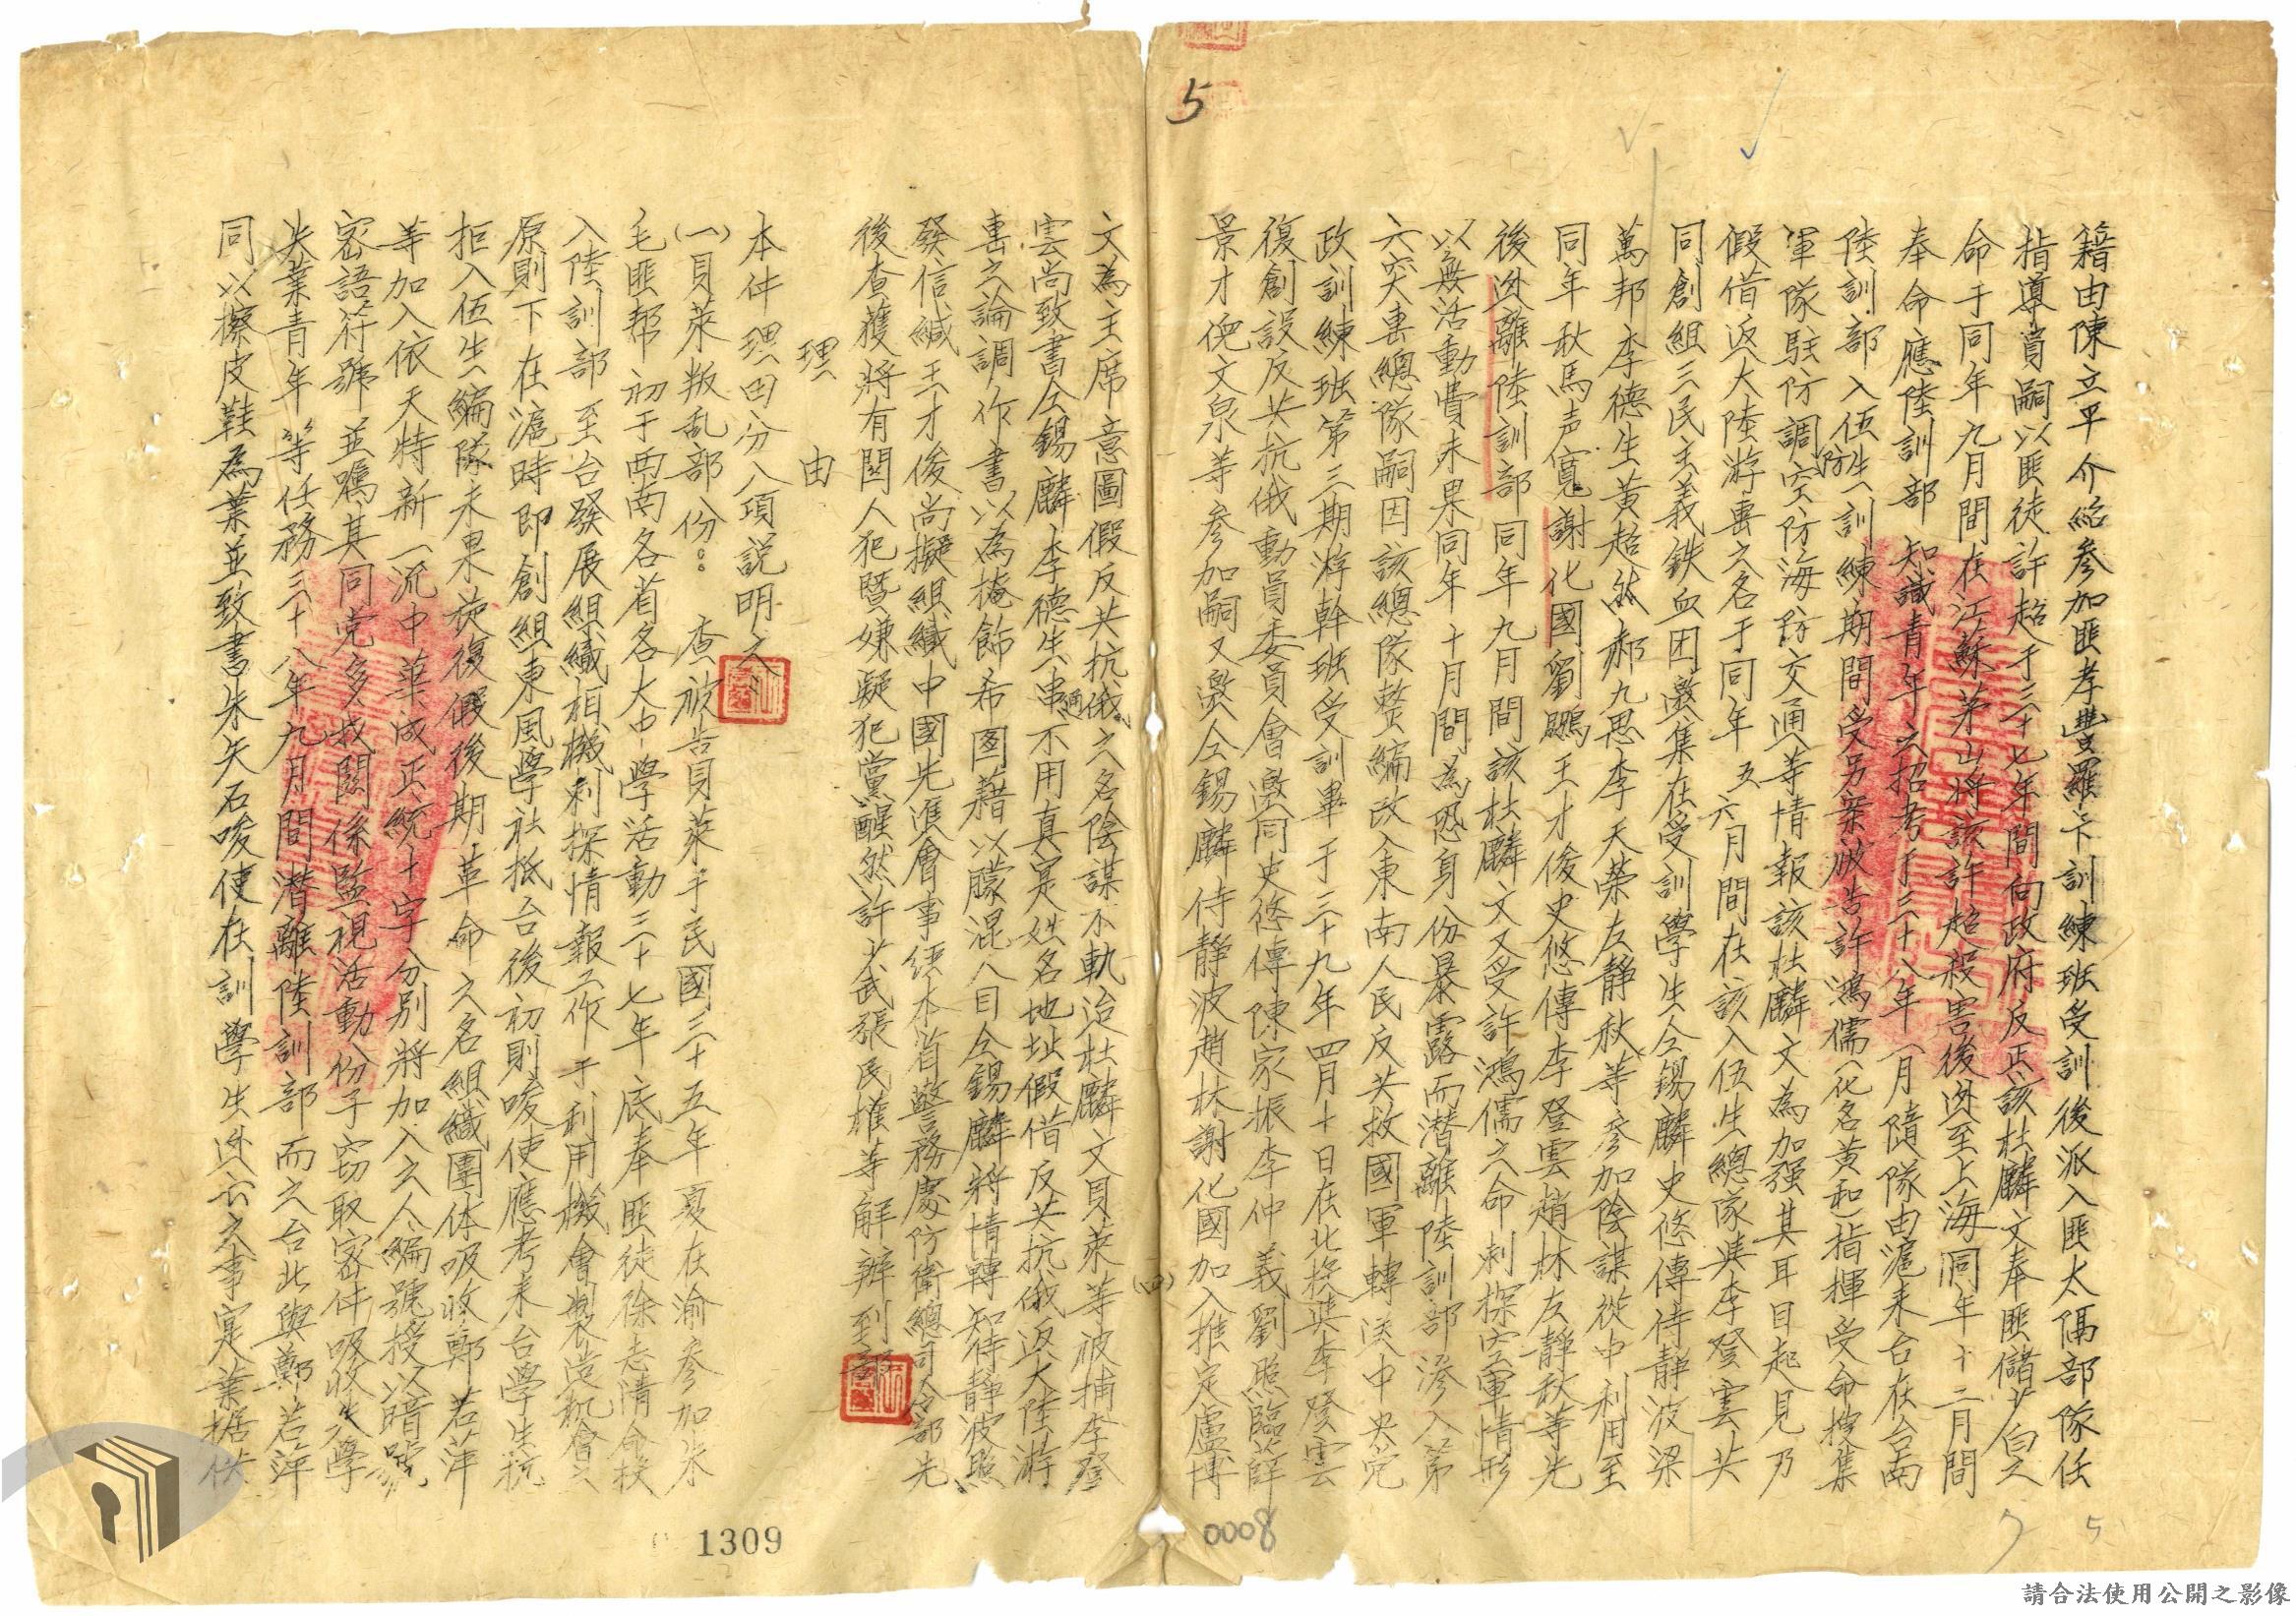 5
籍由陳立平介紹參加匪孝豊羅卡訓練班受訓後派入匪太隔部隊任
指導員嗣以匪徒許超于三十七年間向政府反正該杜麟文奉匪儲白之
命于同年九月間在江蘇茅山將該許超殺害後逃至上海同年十二月間
奉命應陸訓部知識青年之招考于三十八年一月隨隊由滬來台在台南
陸訓部入伍生訓練期間受另案被告許鴻儒(化名黃和)指揮受命搜集
軍隊駐防調空防海防交通等情報該杜麟文為加强其耳目起見乃
假借返大陸游击之名于同年五六月間在該入伍生總隊與李登雲共
同創組三民主義鉄血团邀集在受訓學生仝錫麟史悠傳侍靜波梁
萬邦李德生黃超然郝九思李天榮左靜秋等參加陰謀從中利用至
同年秋馬声寬謝化國劉鵬王才俊史悠傳李登雲趙林左靜秋等先
後逃離陸訓部同年九月間該杜麟文又受許鴻儒之命刺探空軍情形
以無活動費未果同年十月間為恐身份暴露而潜離陸訓部滲入第
六突击總隊嗣因該總隊整編改入東南人民反共救國軍轉送中央党
政訓練班第三期游幹班受訓畢于三十九年四月十日在北投與李登雲
復創設反共抗俄動員委員會邀同史悠傳陳家振李仲義劉照臨薛
景才倪文泉等參加嗣又邀仝錫麟侍靜波趙林謝化國加入推定盧博
文為主席意圖假反共抗俄之名陰謀不軌迨杜麟文貝萊等被捕李登
雲尚致書仝錫麟李德生串通不用真寔姓名地址假借反共抗俄返大陸游
击之論調作書以為掩飾希图藉以矇混人目仝錫麟將情轉知侍靜波照
發信緘王才俊尚擬組織中國先進會事經本省警務處防衛總司令部先
後查獲將有関人犯暨嫌疑犯黨醒然許武張民雄等解辦到部
理由
本件理由分八項説明之
(一)貝萊叛乱部份：查被告貝萊于民國三十五年夏在渝參加朱
毛匪帮初于西南各省各大中學活動三十七年底奉匪徒徐志清命投
入陸訓部至台發展組織相機刺探情報工作于利用機會製造机會之
原則下在滬時即創組東風學社抵台後初則唆使應考來台學生抗
拒入伍生編隊未果旋復假後期革命之名組織團体吸收鄭若萍
等加入依天特新一流中華成正統十字分別將加入之人編號授以暗號
密語符號並嘱其同党多找関係監視活動份子窃取密件吸收失學
失業青年等任務三十八年九月間潜離陸訓部而之台北與鄭若萍
同以擦皮鞋為業並致書朱矢石唆使在訓學生逃亡之事寔業据供
(四)
0008
1309
5
請合法使用公開之影像